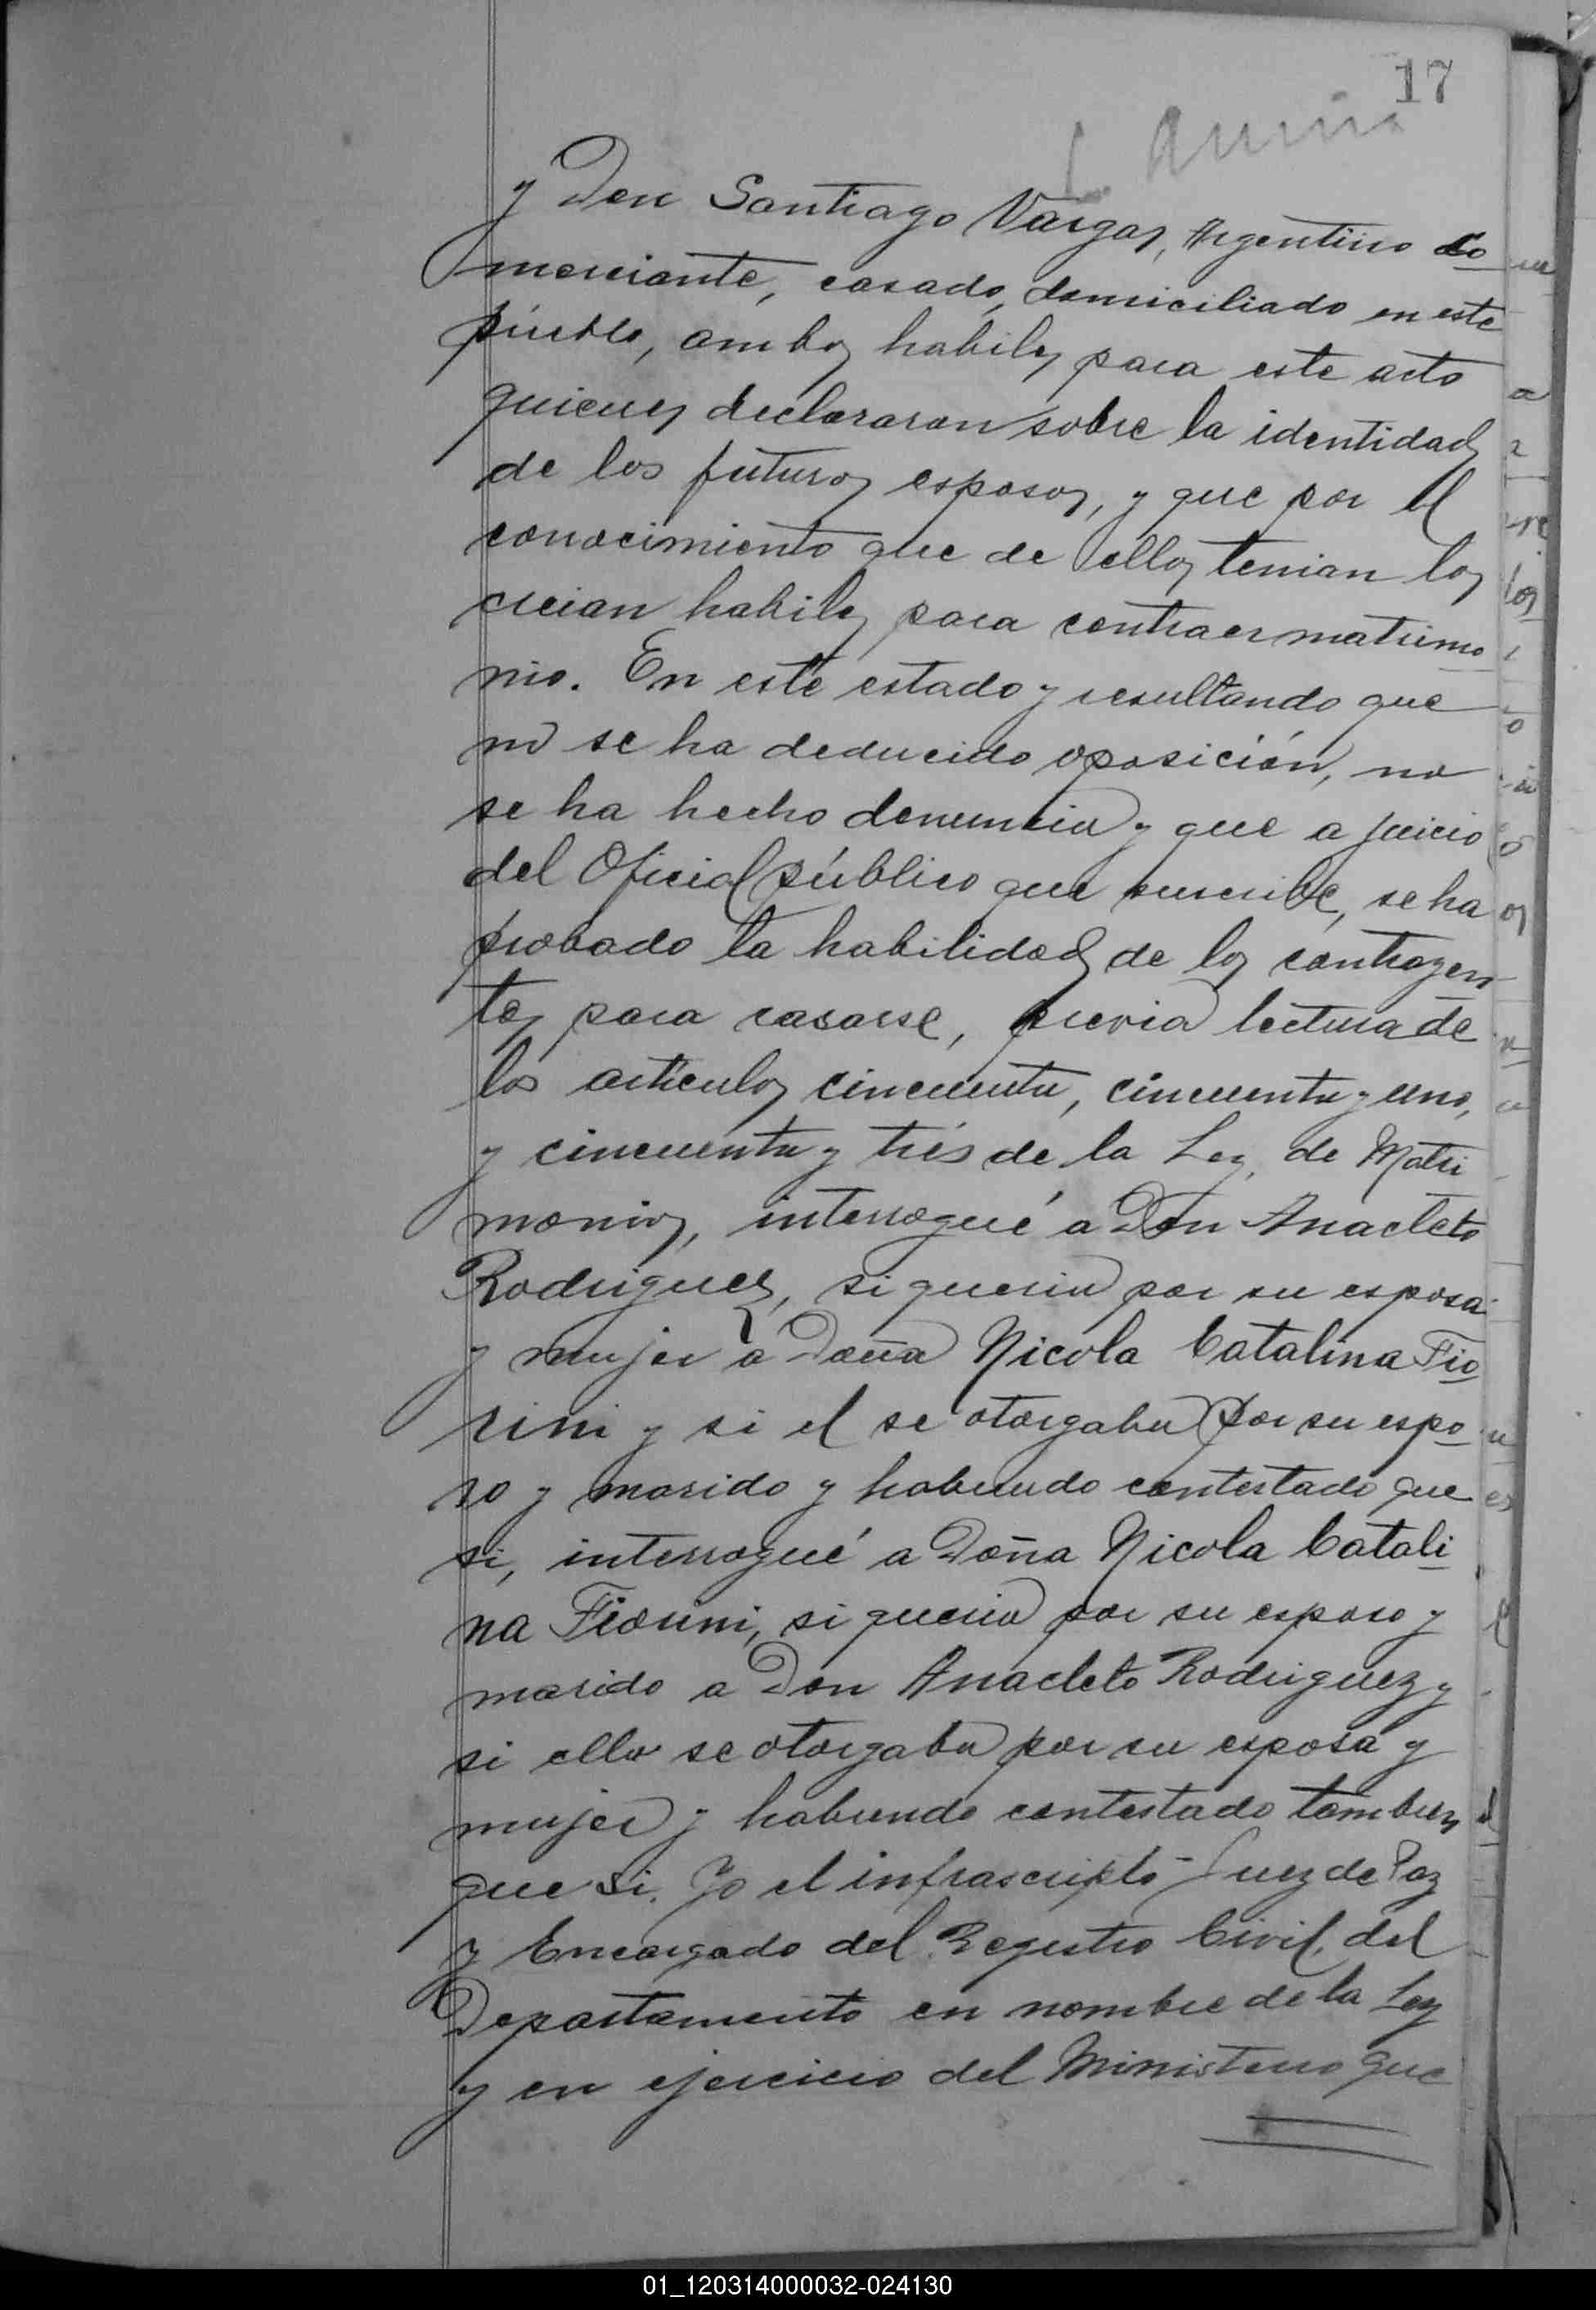 17
y Don Santiago Vargas, Argentino co
merciante, casado, domiciliado en este
pueblo, ambos habiles para este acto
quienes declararon sobre la identidad
de los futuros esposos, y que por el
conocimiento que de ellos tenian los
creian habiles para contraer matrimo
nio. En este estado y resultando que
no se ha deducido oposición, no
se ha hecho denuncia y que a juicio
del Oficial público que suscribe, se ha
probado la habilidad de los contrayen
tes para casarse, previa lectura de
los articulos cincuenta, cincuenta y uno,
y cincuenta y trés de la Ley de Matri
monios, interrogué a Don Anacleto
Rodriguez, si queria por su esposa
y mujer a Doña Nicola Catalina Fio
rini y si el se otorgaba por su espo
so y marido y habiendo contestado que
si, interrogué a Doña Nicola Catali
na Fiorini, si queria por su esposo y
marido a Don Anacleto Rodriguez y
si ella se otorgaba por su esposa y
mujer y habiendo contestado tambien
que si. Yo el infrascripto Juez de Paz
y Encargado del Registro Civil del
Departamento en nombre de la Ley
y en ejercicio del Ministerio que
01_120314000032-024130